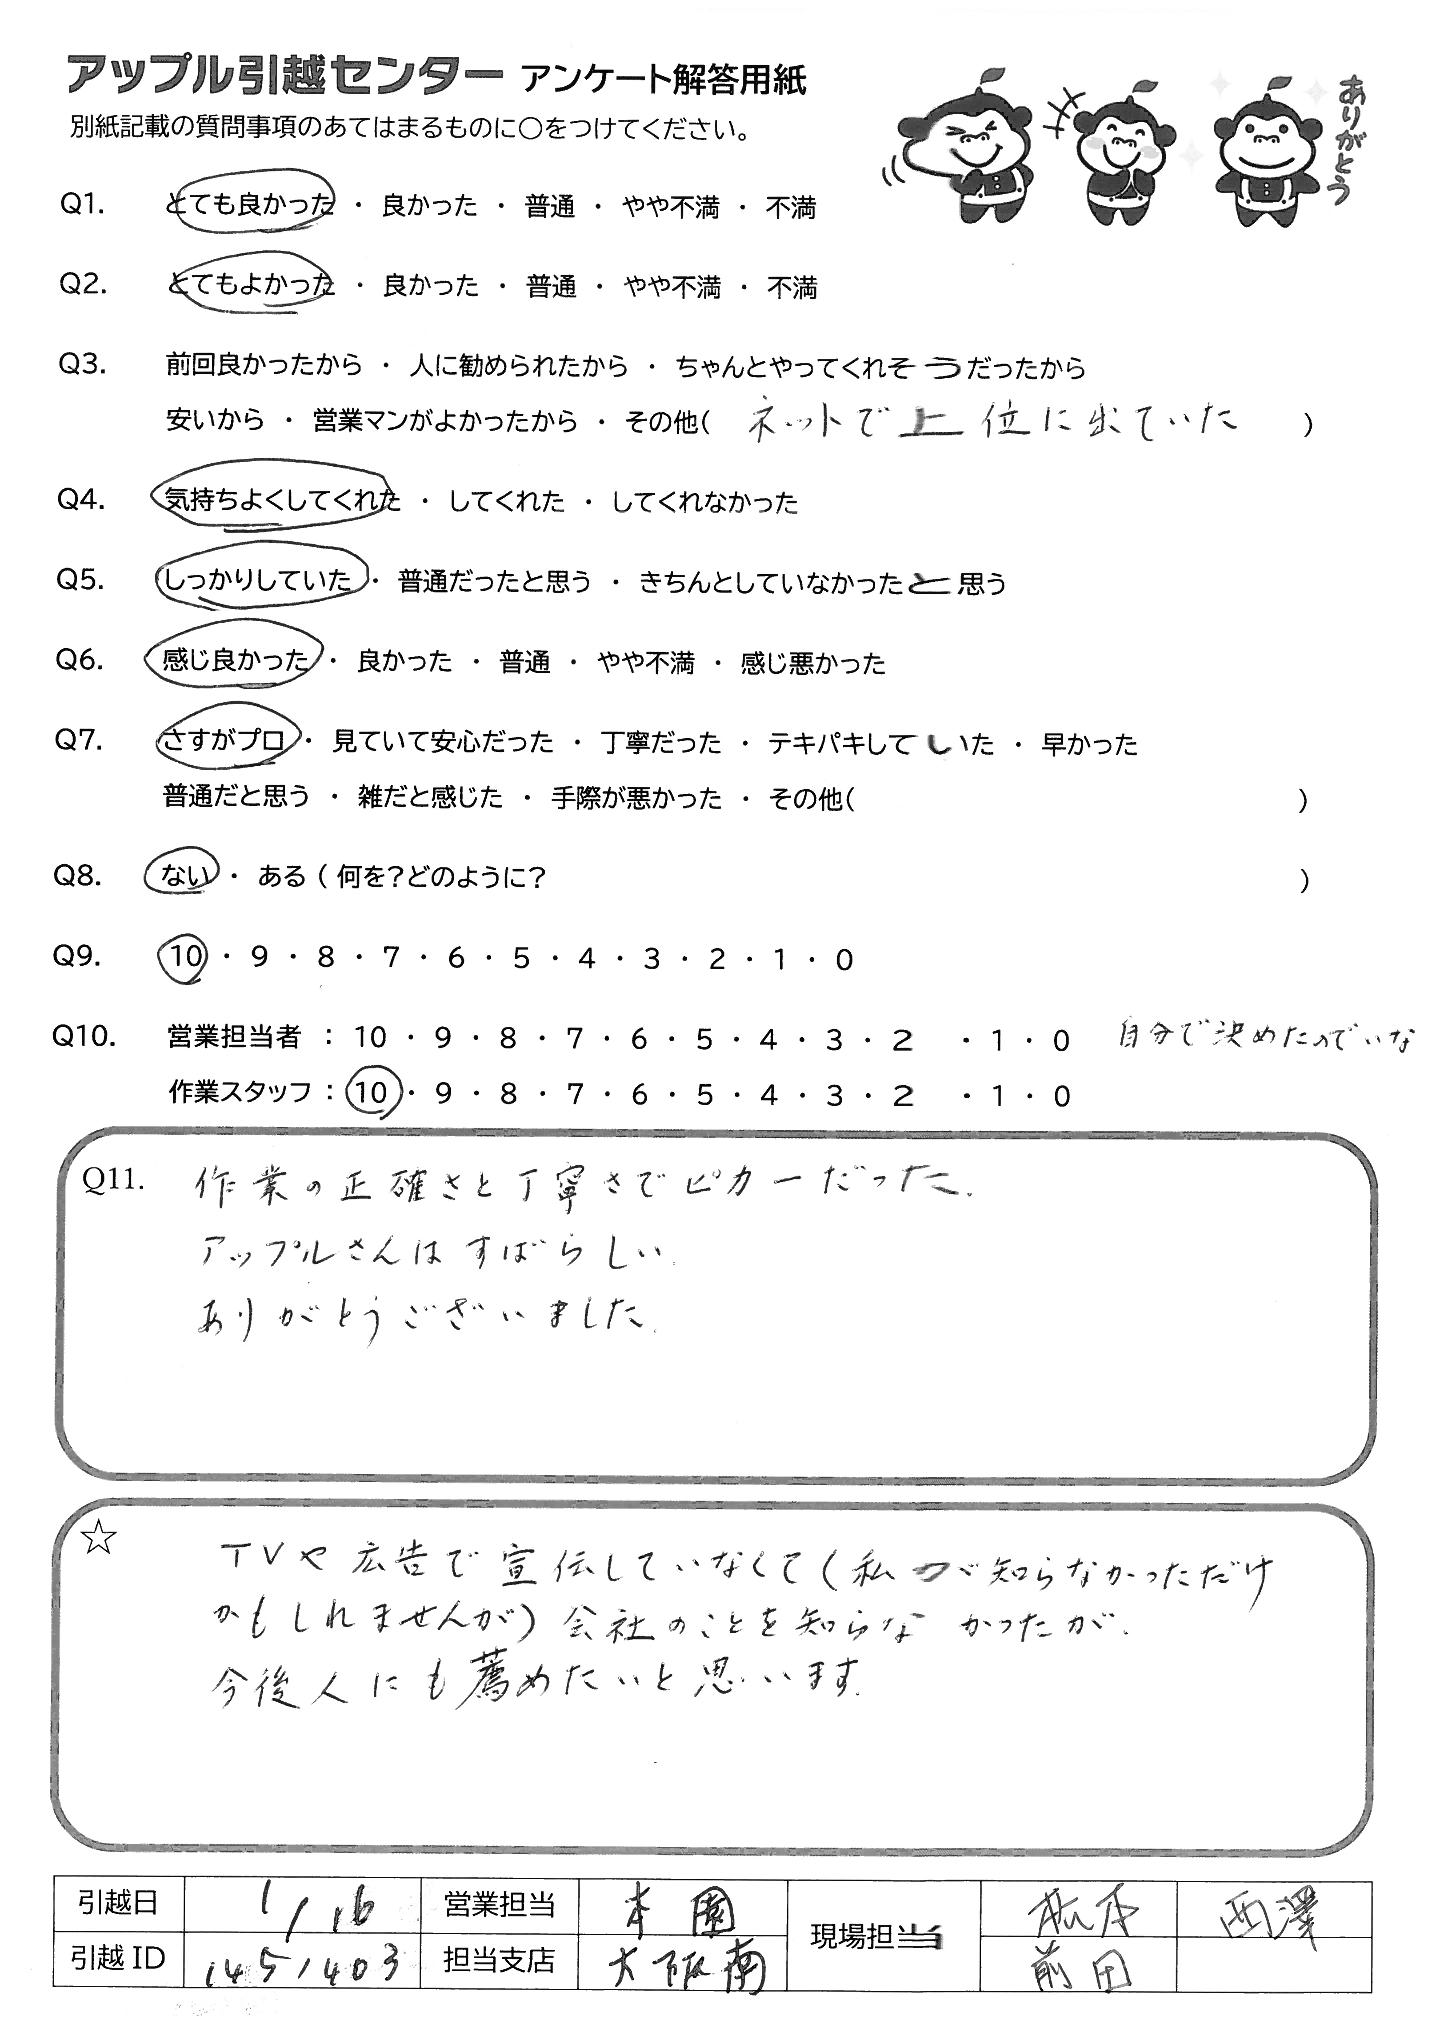 アップル引越センター アンケート解答用紙
ありがとう
別紙記載の質問事項のあてはまるものに〇をつけてください。
Q1. とても良かった ・ 良かった ・ 普通 ・ やや不満 ・ 不満
Q2. とてもよかった ・ 良かった ・ 普通 ・ やや不満 ・ 不満
Q3. 前回良かったから ・ 人に勧められたから ・ ちゃんとやってくれそうだったから
安いから ・ 営業マンがよかったから ・ その他( ネットで上位に出ていた )
Q4. 気持ちよくしてくれた ・ してくれた ・ してくれなかった
Q5. しっかりしていた ・ 普通だったと思う ・ きちんとしていなかったと思う
Q6. 感じ良かった ・ 良かった ・ 普通 ・ やや不満 ・ 感じ悪かった
Q7. さすがプロ ・ 見ていて安心だった ・ 丁寧だった ・ テキパキしていた ・ 早かった
普通だと思う ・ 雑だと感じた ・ 手際が悪かった ・ その他( )
Q8. ない ・ ある ( 何を?どのように? )
Q9. 10 ・ 9 ・ 8 ・ 7 ・ 6 ・ 5 ・ 4 ・ 3 ・ 2 ・ 1 ・ 0
Q10. 営業担当者 : 10 ・ 9 ・ 8 ・ 7 ・ 6 ・ 5 ・ 4 ・ 3 ・ 2 ・ 1 ・ 0 自分で決めたのでいな
作業スタッフ : 10 ・ 9 ・ 8 ・ 7 ・ 6 ・ 5 ・ 4 ・ 3 ・ 2 ・ 1 ・ 0
Q11. 作業の正確さと丁寧さでピカ一だった。
アップルさんはすばらしい。
ありがとうございました。
☆ TVや広告で宣伝していなくて(私が知らなかっただけ
かもしれませんが)会社のことを知らなかったが、
今後人にも薦めたいと思います。
引越日 1/16 営業担当 本園 現場担当 松本 西澤
引越ID 1451403 担当支店 大阪南 前田